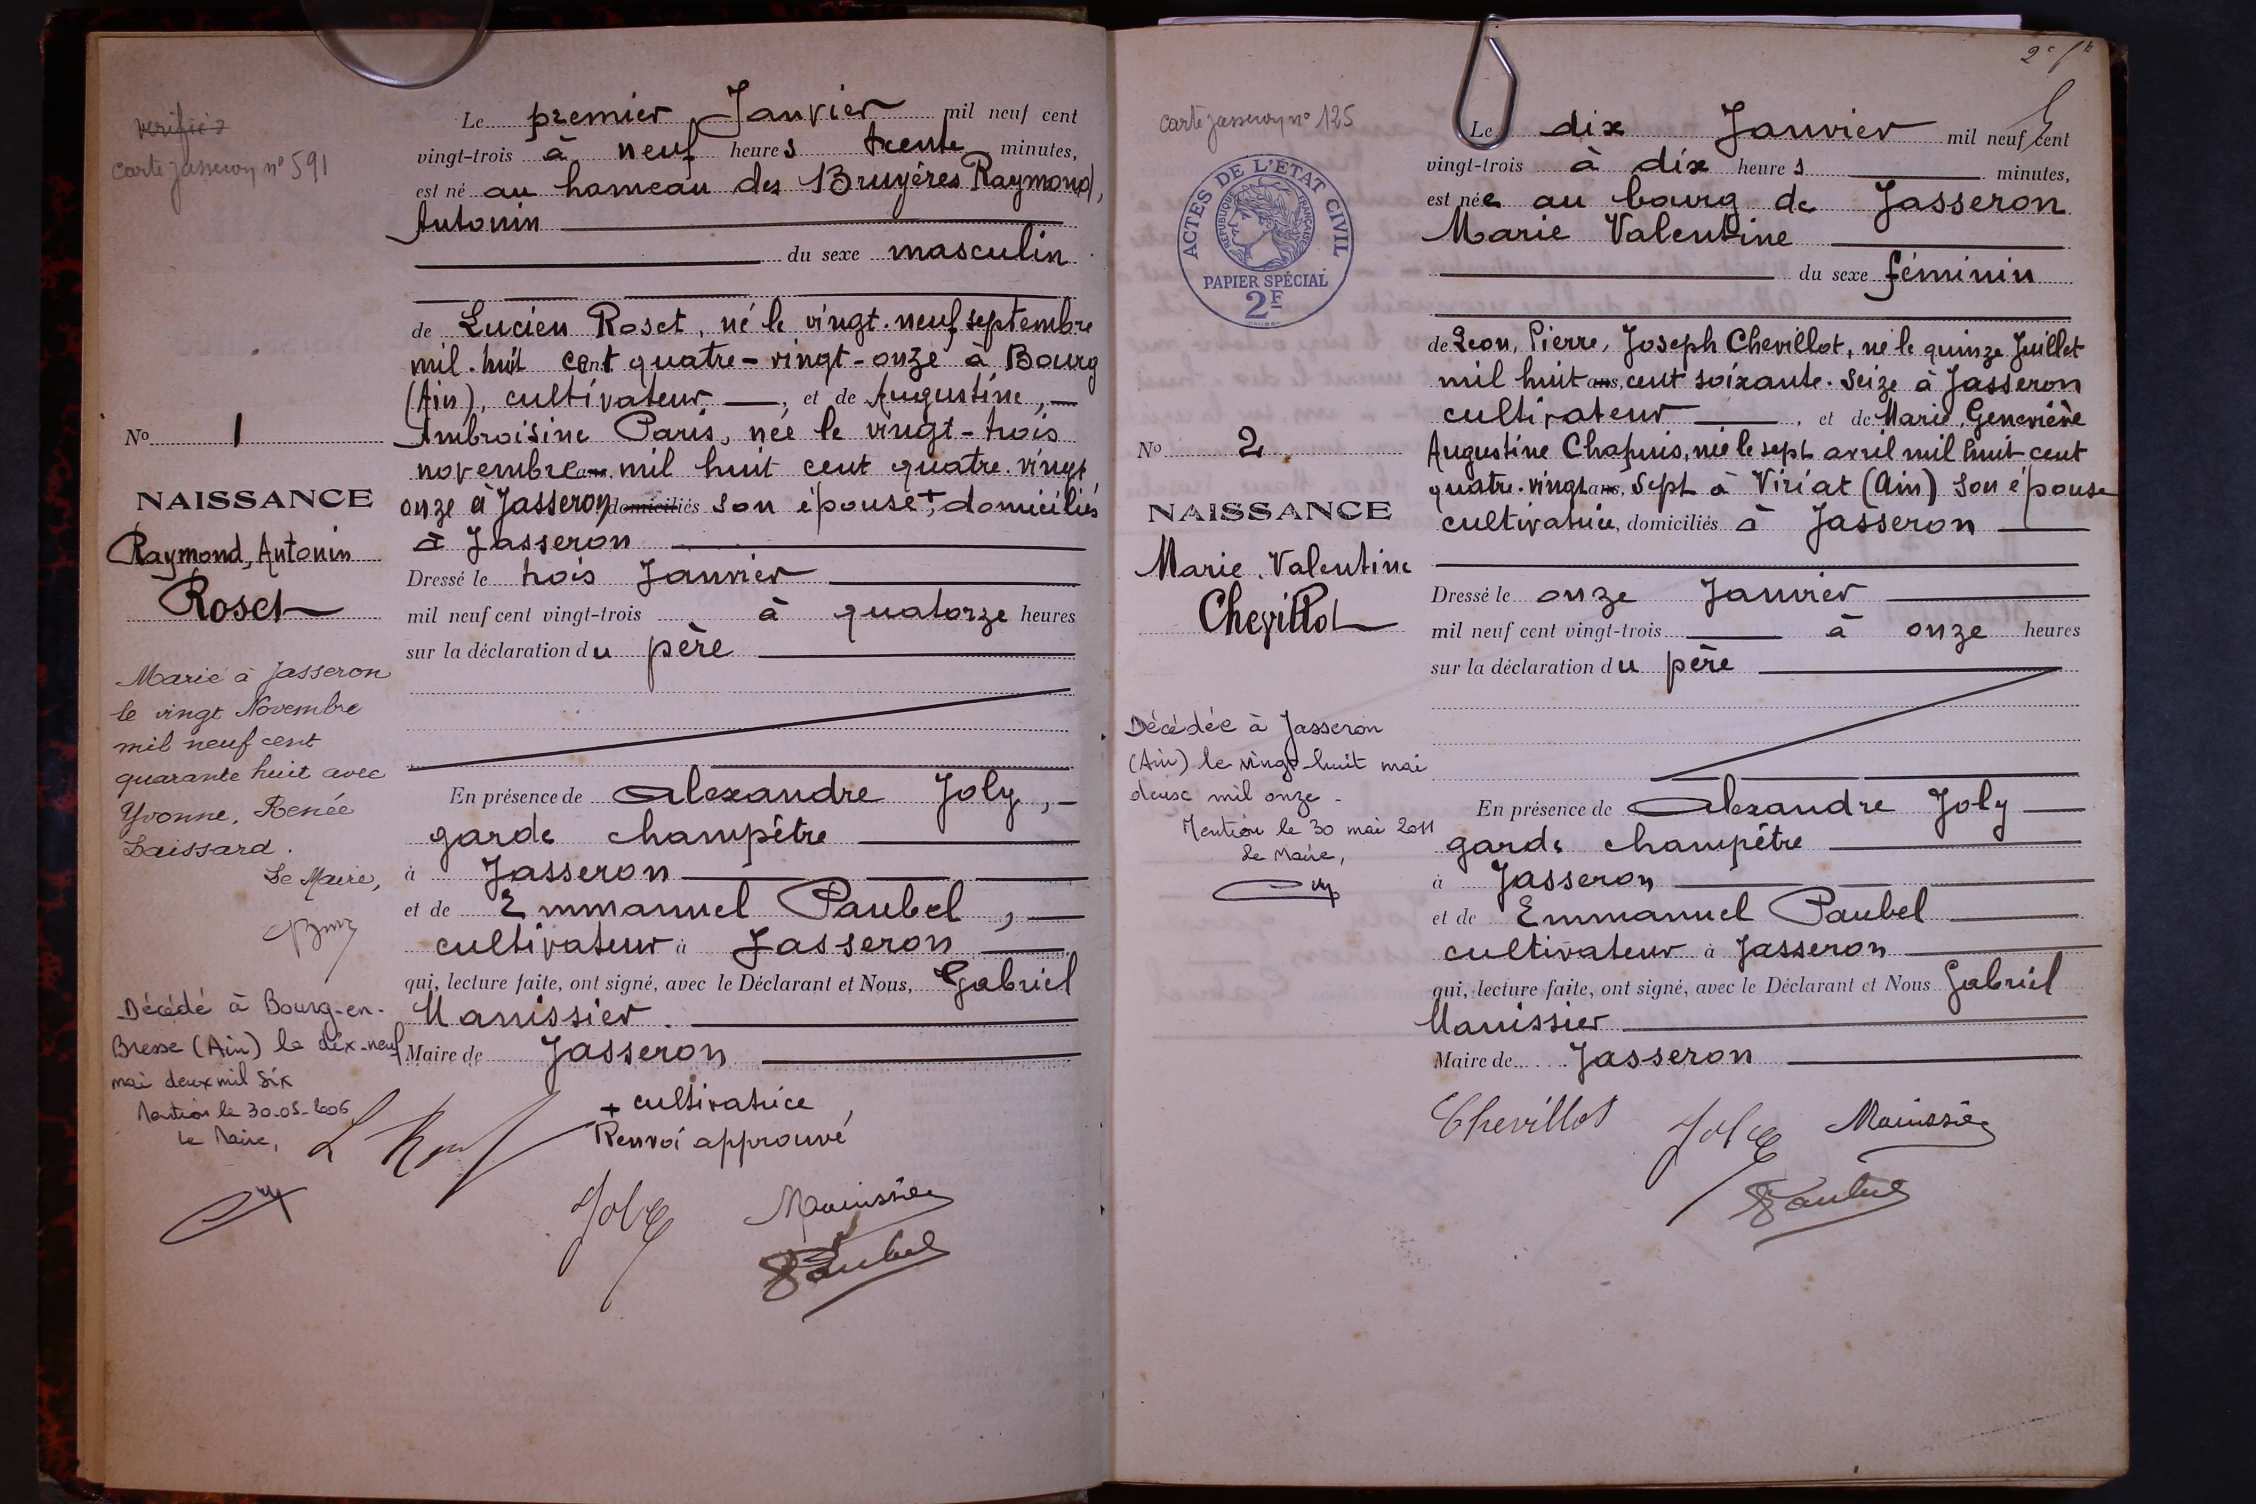 carte Jasseron n° 591
Le premier Janvier mil neuf cent
vingt-trois à neuf heures trente minutes,
est né au hameau des Bruyères Raymond,
Antonin
du sexe masculin
de Lucien Roset, né le vingt-neuf septembre
mil-huit cent quatre-vingt-onze à Bourg
(Ain), cultivateur, et de Augustine,
Ambroisine Paris, née le vingt-trois
novembre ans, mil huit cent quatre-vingt
onze à Jasseron domiciliés son épouse +, domiciliés
à Jasseron
Dressé le trois Janvier
mil neuf cent vingt-trois à quatorze heures
sur la déclaration du père
En présence de Alexandre Joly,
garde champêtre
à Jasseron
et de Emmanuel Paubel,
cultivateur à Jasseron
qui, lecture faite, ont signé, avec le Déclarant et Nous, Gabriel
Manissier.
Maire de Jasseron
+ cultivatrice
Renvoi approuvé
Joly
Manissier
Paubel
N° 1
NAISSANCE
Raymond, Antonin
Roset
Marié à Jasseron
le vingt Novembre
mil neuf cent
quarante huit avec
Yvonne, Renée
Laissard.
Le Maire,
Décédé à Bourg-en-
Bresse (Ain) le dix-neuf
mai deux mil six
Mention le 30-05-2006
Le Maire,
carte Jasseron n° 125
ACTES DE L'ÉTAT CIVIL
RÉPUBLIQUE FRANÇAISE
PAPIER SPÉCIAL
2F
Le dix Janvier mil neuf cent
vingt-trois à dix heures minutes,
est née au bourg de Jasseron
Marie Valentine
du sexe féminin
de Léon, Pierre, Joseph Chevillot, né le quinze Juillet
mil huit ans, cent soixante-seize à Jasseron
cultivateur, et de Marie, Geneviève
Augustine Chapuis, née le sept avril mil huit cent
quatre-vingt ans, sept à Viriat (Ain) son épouse
cultivatrice, domiciliés à Jasseron
Dressé le onze Janvier
mil neuf cent vingt-trois à onze heures
sur la déclaration du père
En présence de Alexandre Joly
garde champêtre
à Jasseron
et de Emmanuel Paubel
cultivateur à Jasseron
qui, lecture faite, ont signé, avec le Déclarant et Nous Gabriel
Manissier
Maire de Jasseron
Chevillot
Joly
Manissier
Paubel
N° 2
NAISSANCE
Marie, Valentine
Chevillot
Décédée à Jasseron
(Ain) le vingt-huit mai
deux mil onze.
Mention le 30 mai 2011
Le Maire,